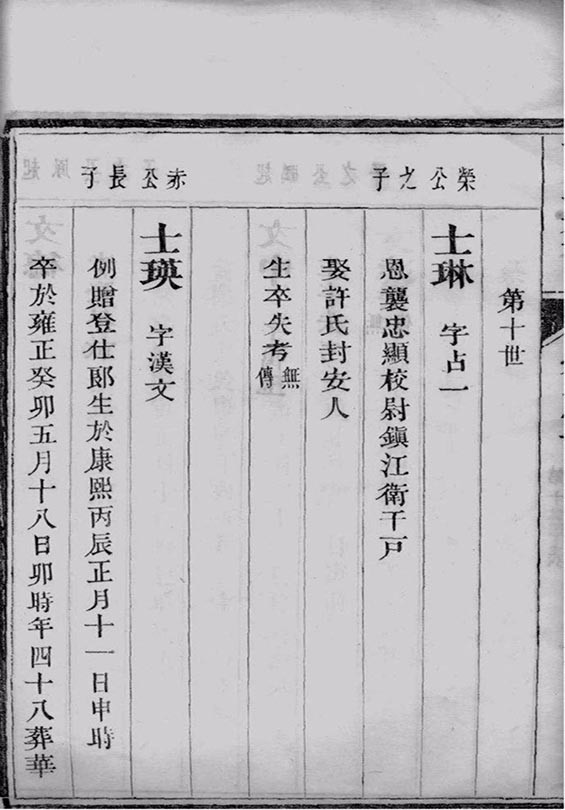 第十世
榮公之子
士琳 字占一
恩襲忠顯校尉鎮江衛千戶
娶許氏封安人
生卒失考 無傳
赤公長子
士瑛 字漢文
例贈登仕郎生於康熙丙辰正月十一日申時
卒於雍正癸卯五月十八日卯時年四十八葬華